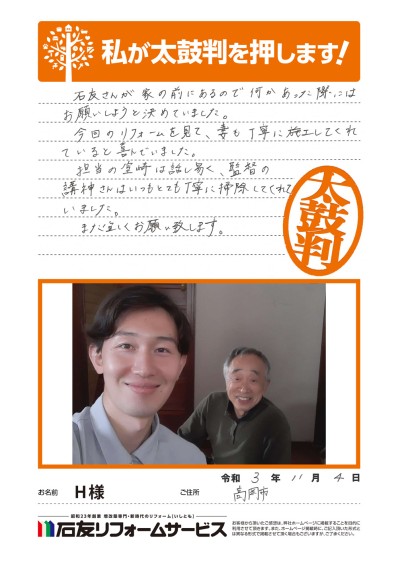 私が太鼓判を押します!
石友さんが家の前にあるので何かあった際には
お願いしようと決めていました。
今回のリフォームを見て、妻も丁寧に施工してくれ
ていると喜んでいました。
担当の宮崎は話し易く、監督の
講神さんはいつもとても丁寧に掃除してくれて
いました。
また宜しくお願い致します。
太鼓判
令和 3 年 11 月 4 日
お名前 H様 ご住所 高岡市
昭和23年創業 増改築専門・新時代のリフォーム[いしとも]
石友リフォームサービス
お客様から頂いたご感想は、弊社ホームページに掲載することを目的に
利用させて頂きます。また、ホームページ掲載時に、ご記入頂いた形式と
は異なる形式で掲載させて頂く場合もございますが、ご了承ください。